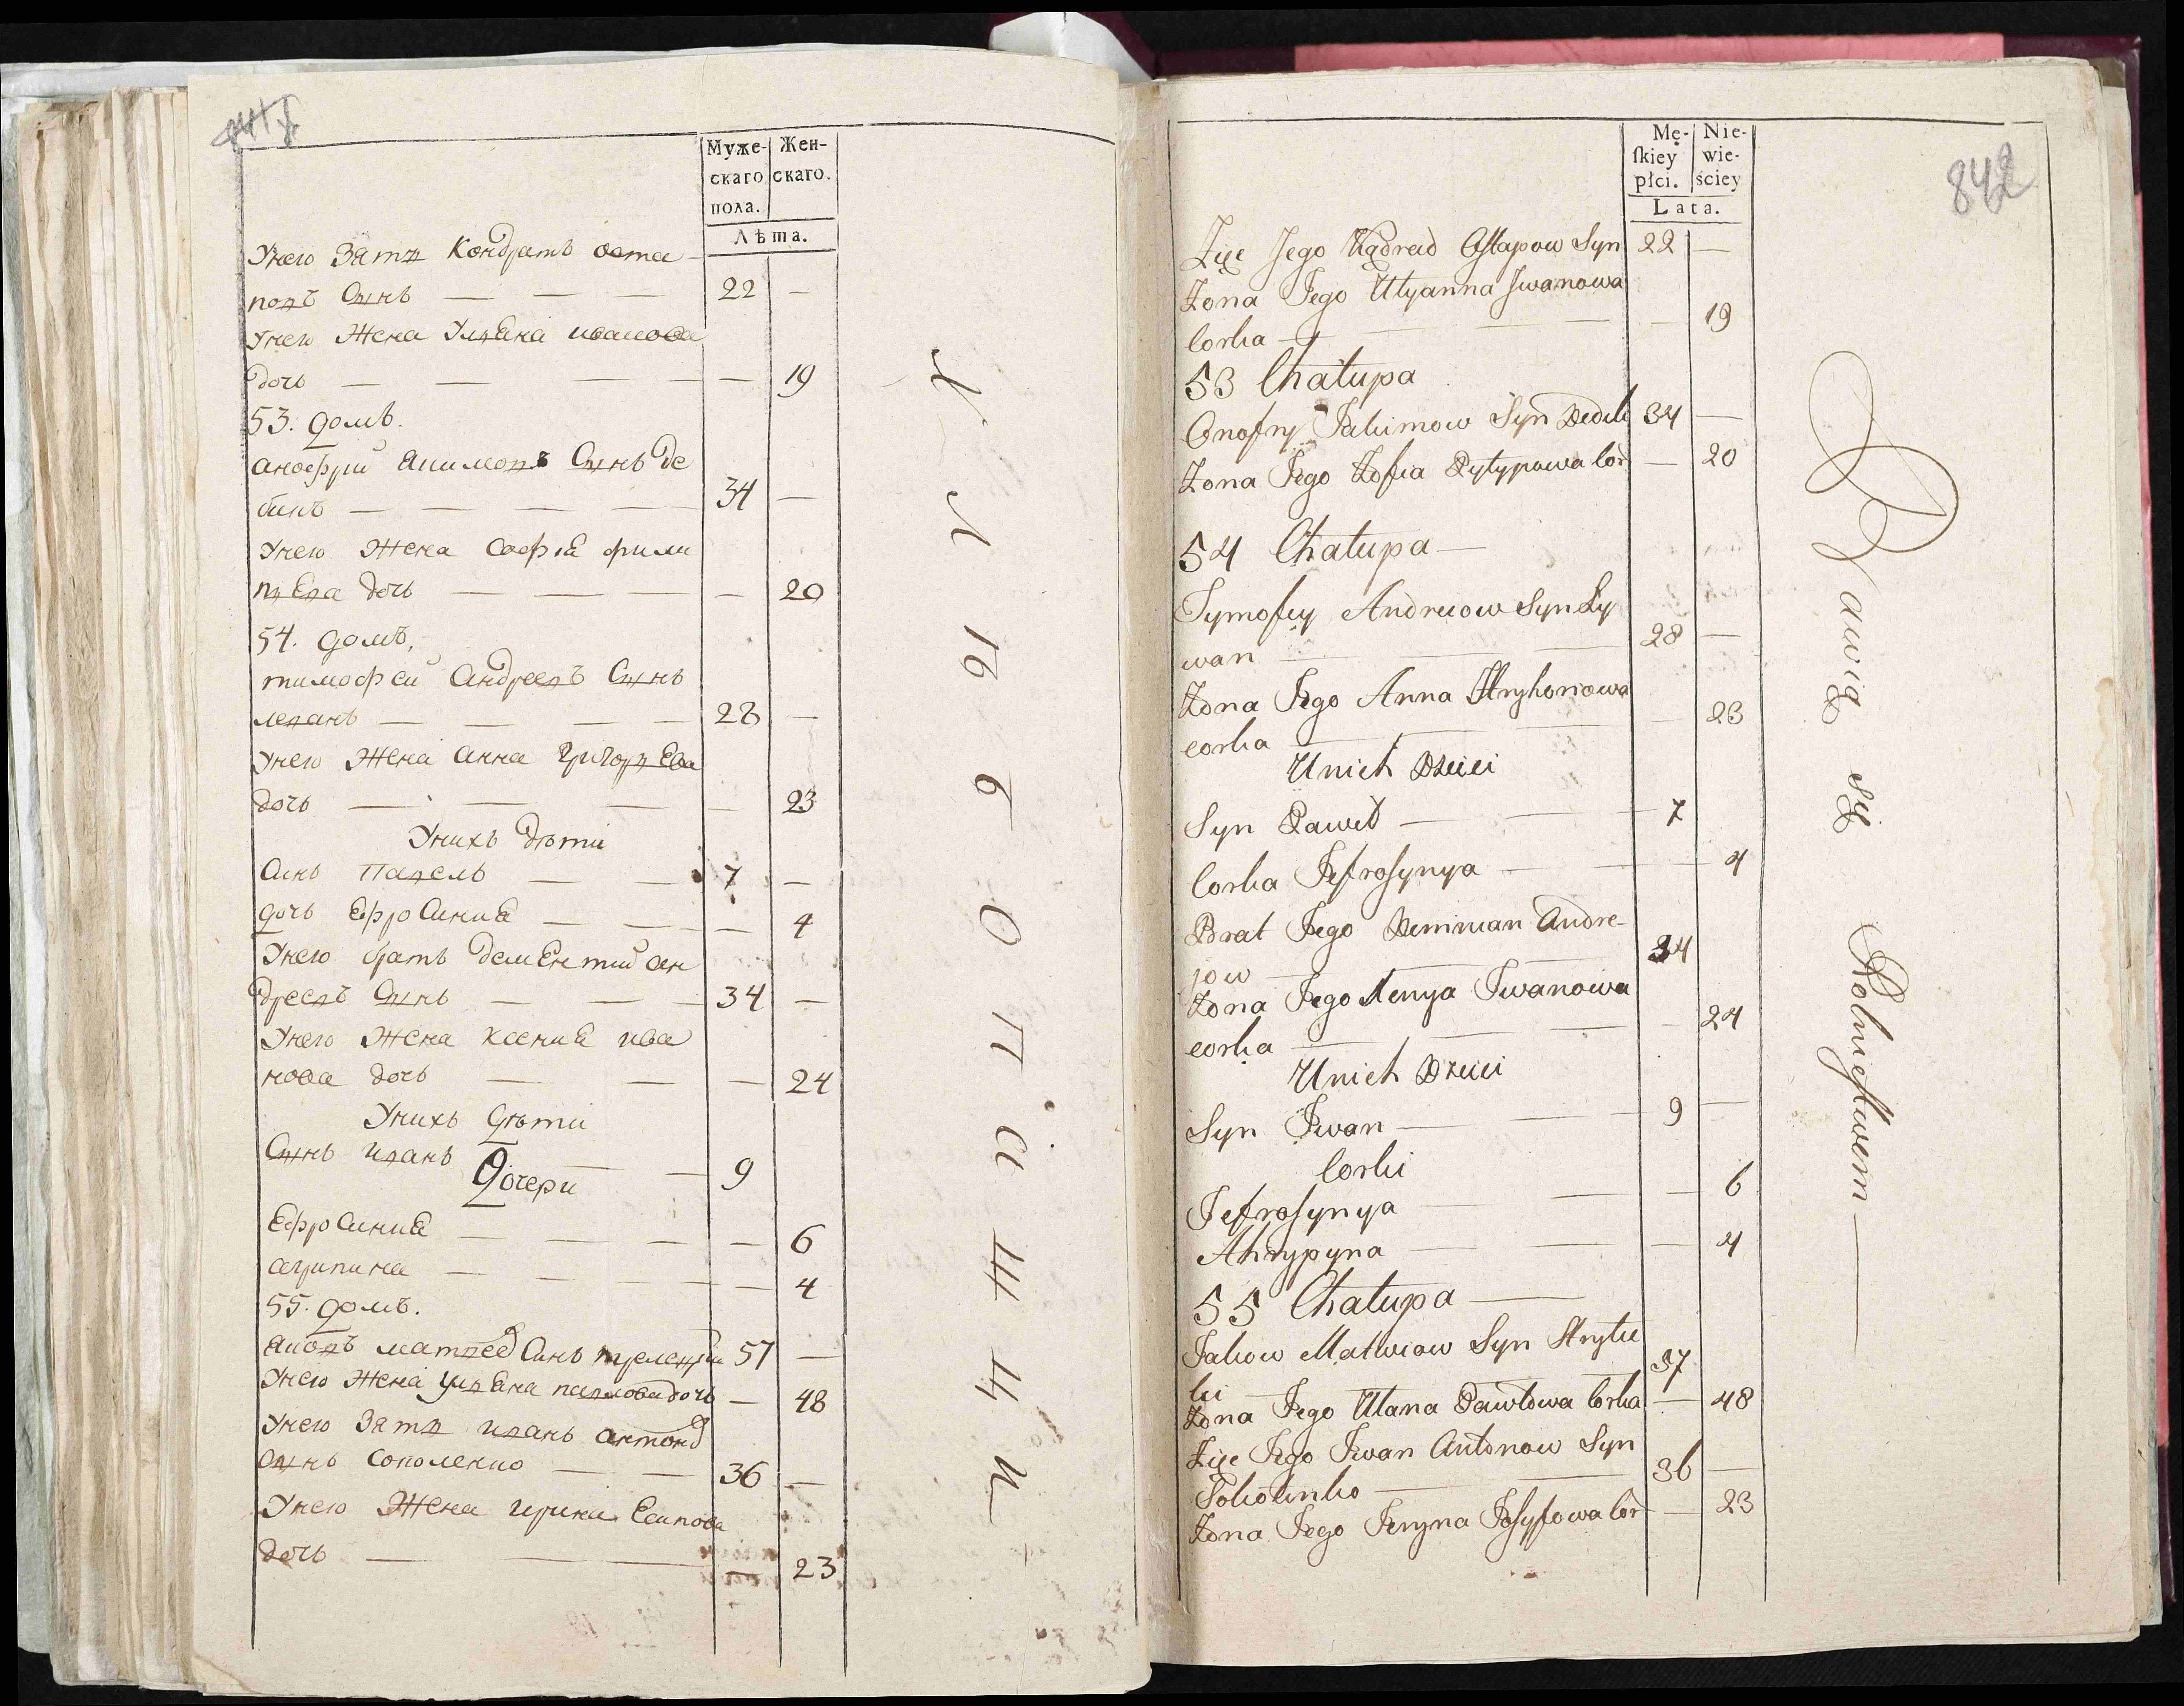 Муже-
скаго
пола.
Жен-
скаго.
Лѣта.
Унего Зять Кондратъ оста
повъ Сынъ — — — 22 —
Унего Жена Ульяна иванова
дочь — — — — 19
53. домъ.
анофрій Акимовъ Сынъ де
бикъ — — — — 34 —
Унего Жена Софія фили
пьева дочь — — — — 20
54. домъ.
тимофей Андреевъ Сынъ
леванъ — — — — 28 —
Унего Жена Анна Григорьева
дочь — — — — 23
Унихъ дѣти
Синъ Павелъ — — 7 —
дочь Ефросиния — — — 4
Унего братъ дементий ан
дреевъ Сынъ — — — 34 —
Унего Жена Ксения ива
нова дочь — — — 24
Унихъ дѣти
Сынъ иванъ — — 9
Дочери
Ефросиния — — — — 6
агрипина — — — — 4
55. домъ.
Яковъ матвеевъ Синъ 57 —
Унего Жена Ульяна павлова дочь — 48
Унего Зять иванъ антоновъ
Сынъ Соколенко — — 36 —
Унего Жена ирина Есипова
дочь — — — — 23
Х л ѣ б о п а ш ц ы
842
Mę-
ſkiey
płci.
Nie-
wie-
ściey
Lata.
Zięć Jego Kądrad Ostapow Syn 22 —
Zona Jego Ulyanna Jwanowa
Corka — — — — 19
53 Chałupa
Onofry Jakimow Syn 34 —
Zona Jego Zofia Pylypowa Cor — 20
54 Chałupa —
Tymofiy Andreiow Syn Ly
wan — — — 28 —
Zona Jego Anna Hryhorowa
corka — — — 23
Unich Dzieci
Syn Paweł — — — 7
Corka Jefrosynya — — — 4
Brat Jego Demian Andre-
jow — — — 34
Zona Jego Xenya Jwanowa
corka — — — — 24
Unich Dzieci
Syn Jwan — — — 9 —
Corki
Jefrosynya — — — 6
Ahrypyna — — — 4
55 Chałupa —
Jakow Matwiow Syn
ki 57
Zona Jego Ulana Pawłowa Corka — 48
Zięć Jego Jwan Antonow Syn
Sokolenko — — 36 —
Zona Jego Jryna Josyfowa Cor — 23
Bawią się Rolnictwem —